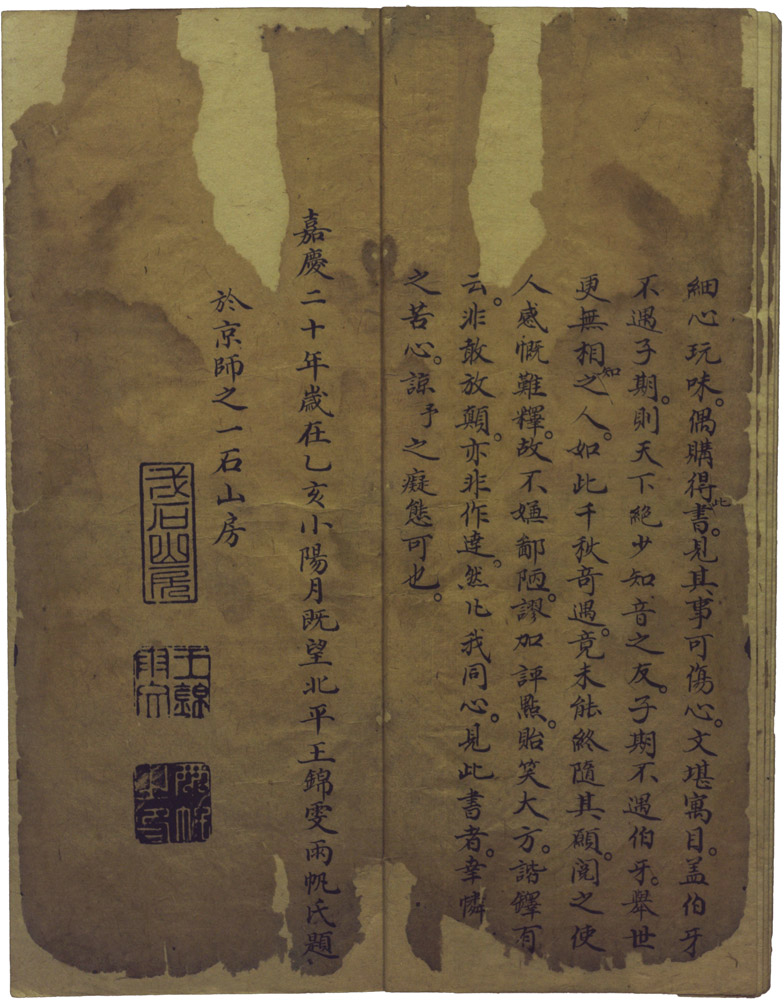 細心玩味。偶購得此書。見其事可傷心。文堪寓目。盖伯牙
不遇子期。則天下絶少知音之友。子期不遇伯牙。舉世
更無相知之人。如此千秋奇遇。竟未能終隨其願。閲之使
人感慨難釋。故不嫌鄙陋。謬加評點。貽笑大方。諧鐸有
云。非敢放顛。亦非作達。然凡我同心。見此書者。幸憐
之苦心。諒予之癡態可也。
嘉慶二十年歲在乙亥小陽月既望北平王錦雯雨帆氏題
於京師之一石山房
王錦